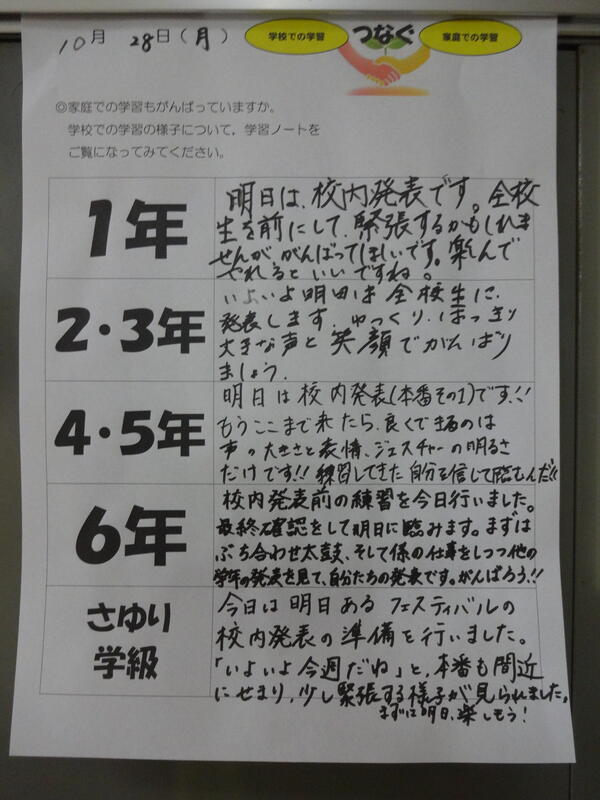 10月 28日(月)
学校での学習
つなぐ
家庭での学習
◎家庭での学習もがんばっていますか。
学校での学習の様子について，学習ノートを
ご覧になってみてください。
1年
明日は、校内発表です。全校
生を前にして、緊張するかもしれま
せんが、がんばってほしいです。楽しんで
やれるといいですね。
2・3年
いよいよ明日は全校生に
発表します。ゆっくり、はっきり
大きな声と笑顔でがんばり
ましょう。
4・5年
明日は校内発表(本番その1)です!!
もうここまで来たら、良くできるのは
声の大きさと表情、ジェスチャーの明るさ
だけです!!練習してきた自分を信じて臨むんだ!!
6年
校内発表前の練習を今日行いました。
最終確認をして明日に臨みます。まずは
ぶち合わせ太鼓、そして係の仕事をしつつ他の
学年の発表を見て、自分たちの発表です。がんばろう!!
さゆり
学級
今日は明日あるフェスティバルの
校内発表の準備を行いました。
「いよいよ今週だね」と、本番も間近
にせまり、少し緊張する様子が見られました。
まずは明日、楽しもう!